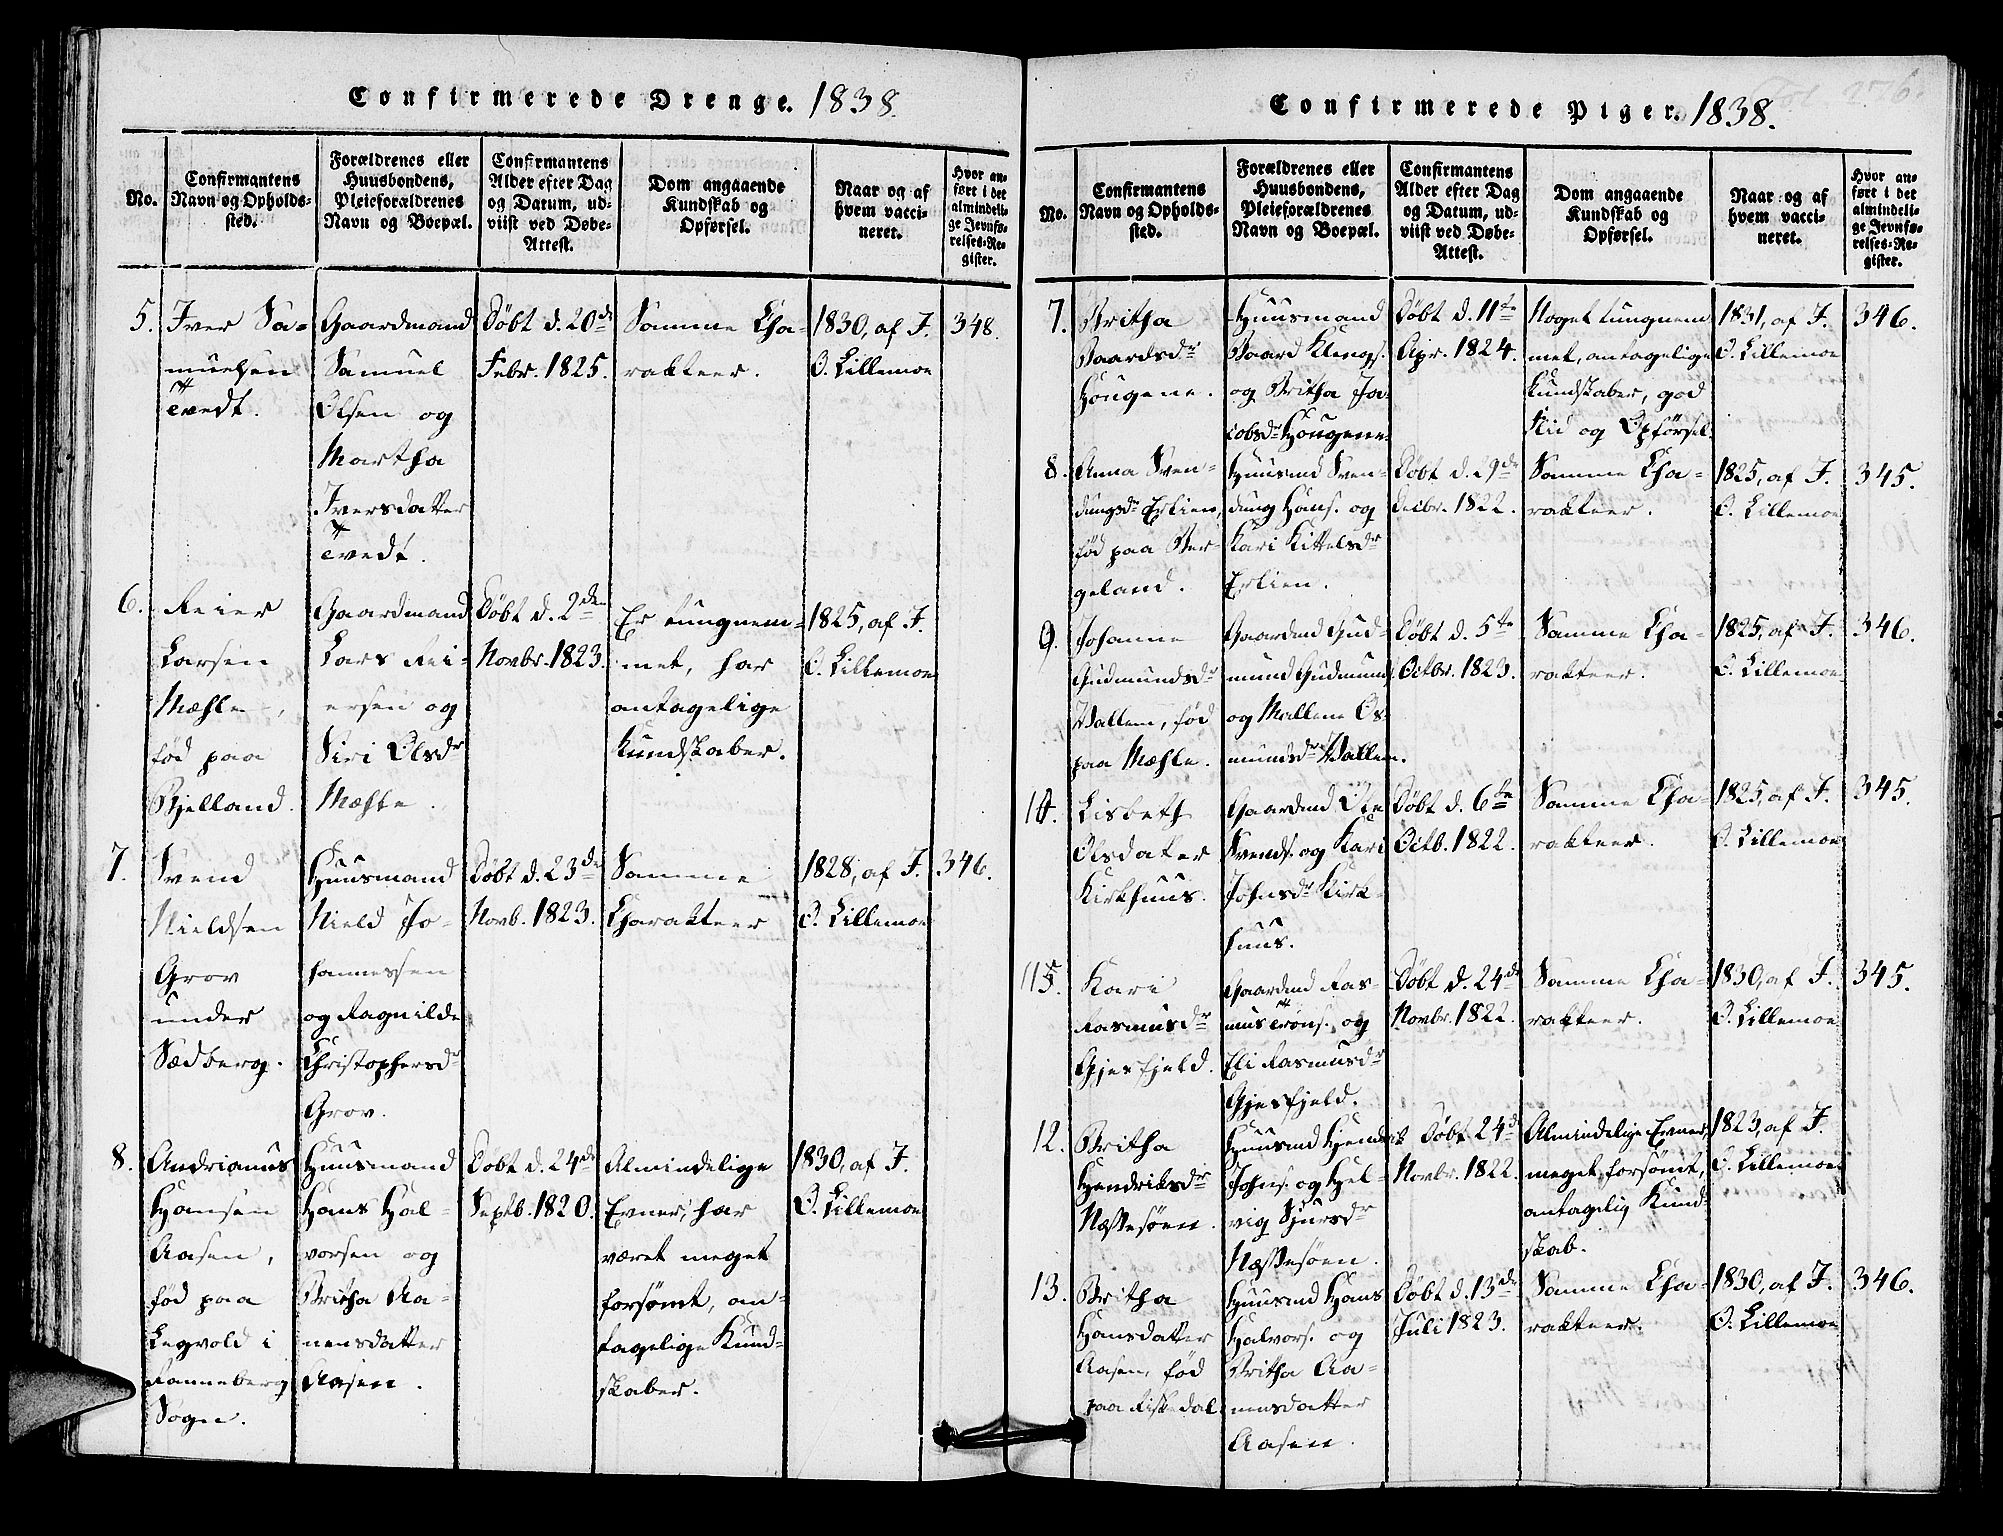 Confirmerede Drenge. 1838.
No.
Confirmantens
Navn og Opholds-
sted.
Forældrenes eller
Huusbondens,
Pleieforældrenes
Navn og Boepæl.
Confirmantens
Alder efter Dag
og Datum, ud-
viist ved Døbe-
Attest.
Dom angaaende
Kundskab og
Opførsel.
Naar og af
hvem vacci-
neret.
Hvor an-
ført i det
almindeli-
ge Jevnfø-
relses-Re-
gister.
5.
Iver Sa-
muelsen
Tvedt.
Gaardmand
Samuel
Olsen og
Martha
Iversdatter
Tvedt.
Døbt d. 20de
Febr. 1825.
Samme Cha-
rakteer.
1830, af J.
O. Lillemoe
348.
6.
Reier
Larsen
Mæhle,
fød paa
Bjelland.
Gaardmand
Lars Rei-
ersen og
Siri Olsdr
Mæhle.
Døbt d. 2den
Novbr. 1823.
Er tungnem-
met, har
antagelige
Kundskaber.
1825, af J.
O. Lillemoe
7.
Svend
Nieldsen
Grov
under
Sædberg.
Huusmand
Nield Jo-
hannessen
og Ragnilde
Christophersdr
Grov.
Døbt d. 23de
Novb. 1823.
Samme
Charakteer
1828, af J.
O. Lillemoe
346.
8.
Andrianus
Hansen
Aasen,
fød paa
Legvold i
Ranneberg
Sogn.
Huusmand
Hans Hal-
vorsen og
Britha Aa-
nensdatter
Aasen.
Døbt d. 24de
Septb. 1820.
Almindelige
Evner, har
været meget
forsømt, an-
tagelige Kund-
skaber.
1830, af J.
O. Lillemoe
Confirmerede Piger. 1838.
Fol 276.
No.
Confirmantens
Navn og Opholds-
sted.
Forældrenes eller
Huusbondens,
Pleieforældrenes
Navn og Boepæl.
Confirmantens
Alder efter Dag
og Datum, ud-
viist ved Døbe-
Attest.
Dom angaaende
Kundskab og
Opførsel.
Naar og af
hvem vacci-
neret.
Hvor an-
ført i det
almindeli-
ge Jevnfø-
relses-Re-
gister.
7.
Britha
Baardsdr
Hougene.
Huusmand
Baard Klengs.
og Britha Ja-
cobsdr Hougene
Døbt d. 11te
Apr. 1824.
Noget tungnem
met, antagelige
Kundskaber, god
Flid og Opførsel.
1831, af J.
O. Lillemoe
346.
8.
Anna Sven-
dungsdr Erlien,
fød paa Ber-
geland.
Huusmd Sven-
dung Hans. og
Kari Kittelsdr
Erlien.
Døbt d. 29de
Decbr. 1822.
Samme Cha-
rakteer.
1825, af J.
O. Lillemoe
345.
9.
Johanne
Gudmundsdr
Vallem, fød
paa Mæhle.
Gaardmd Gud-
mund Gudmunds.
og Mallene Os-
mundsdr Vallem.
Døbt d. 5te
Octbr. 1823.
Samme Cha-
rakteer.
1825, af J.
O. Lillemoe
346.
10.
Lisbeth
Olsdatter
Kirkhuus.
Gaardmd Ole
Svends. og Kari
Johnsdr Kirk-
huus.
Døbt d. 6te
Octb. 1822.
Samme Cha-
rakteer.
1825, af J.
O. Lillemoe
345.
Kari
Rasmusdr
Gjesfjeld.
Gaardmd Ras-
mus Trons. og
Eli Rasmusdr
Gjesfjeld.
Døbt d. 24de
Novbr. 1822.
Samme Cha-
rakteer.
1830, af J.
O. Lillemoe
345.
12.
Britha
Hendriksdr
Næssesøen.
Huusmd Hendrik
Johns. og Hel-
vig Sjursdr
Næssesøen.
Døbt 24de
Novbr. 1822.
Almindelige Evner,
meget forsømt,
antagelig Kund-
skab.
1823, af J.
O. Lillemoe
13.
Britha
Hansdatter
Aasen, fød
paa Riskedal.
Huusmd Hans
Halvors. og
Britha Aa-
nensdatter
Aasen.
Døbt d. 13de
Juli 1823.
Samme Cha-
rakteer.
1830, af J.
O. Lillemoe
346.